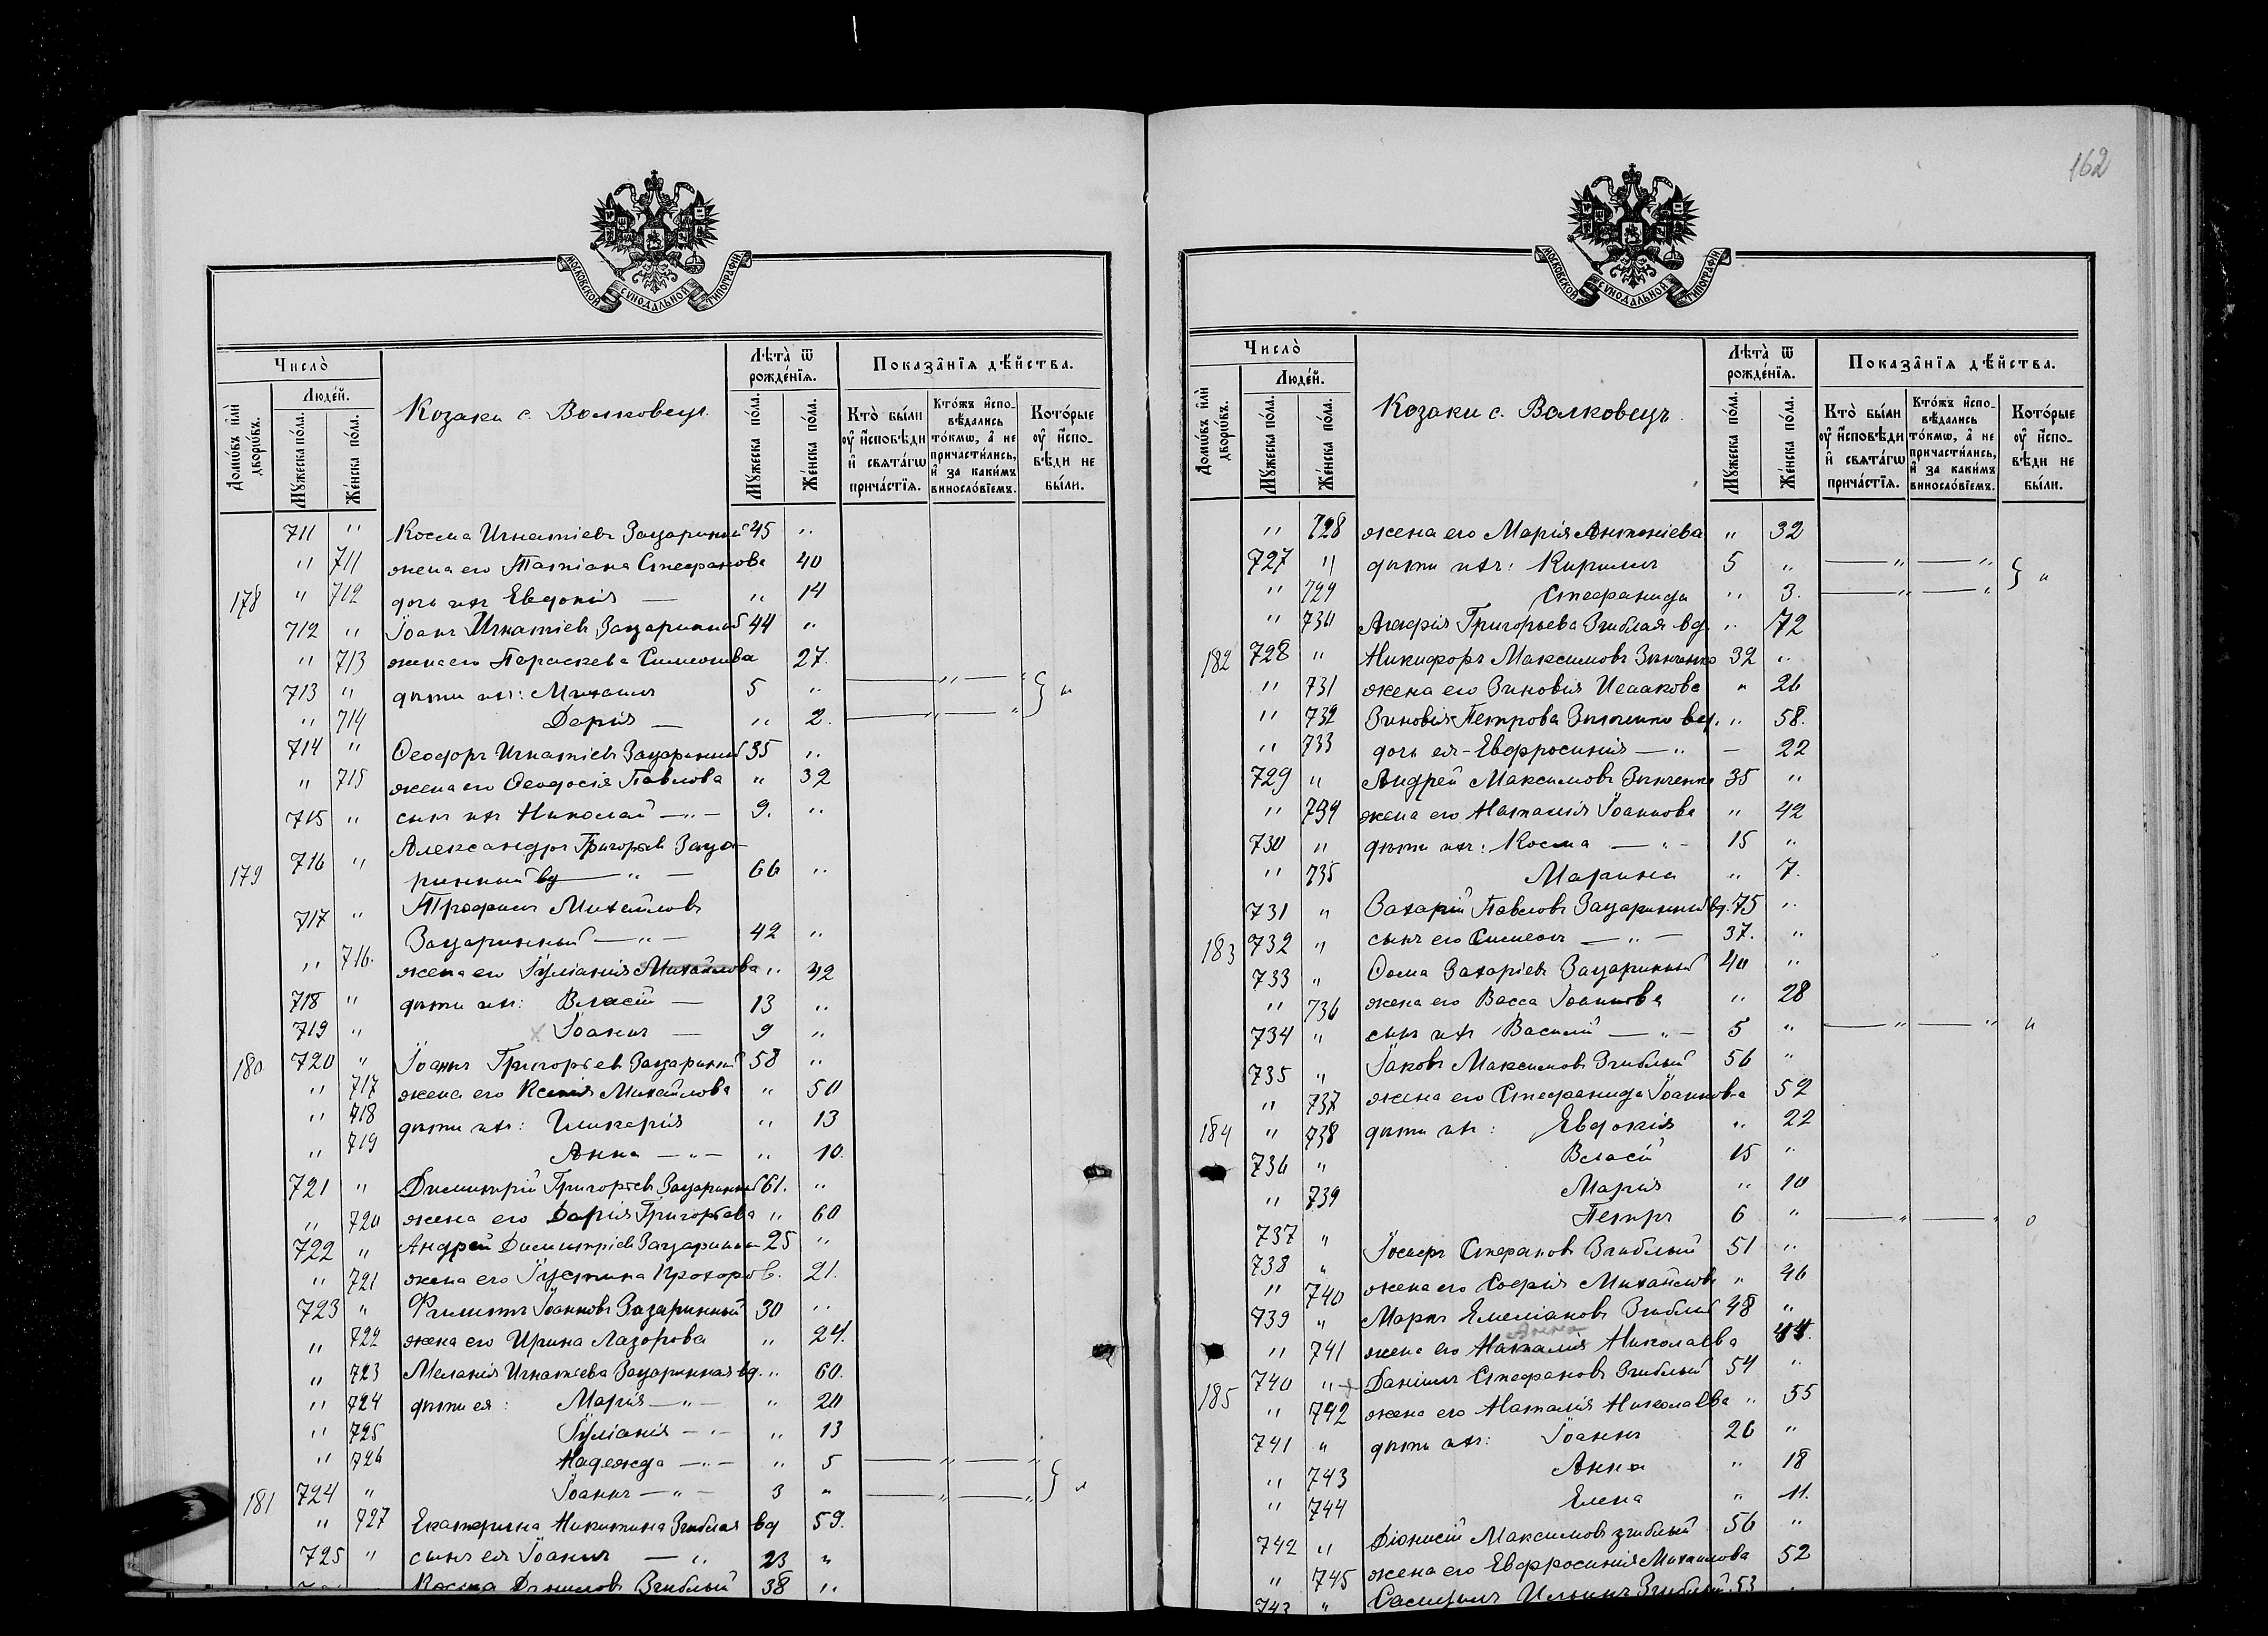 162
МОСКОВСКОЙ СУНОДАЛЬНОЙ ТИПОГРАФІИ
Число̀
Людéй.
Домѡ́въ и҆лѝ дворѡ́въ.
Мꙋ́жеска по́ла.
Же́нска по́ла.
Козаки с. Волковецъ
Лѣта̀ ѿ рожде́нїѧ.
Мꙋ́жеска по́ла.
Же́нска по́ла.
Показа̑нїѧ дѣ́йства.
Кто̀ бы́ли оу҆ и҆сповѣди и҆ свѧта́гѡ прича́стїѧ.
Кто́жъ и҆спо-вѣдались то́кмѡ, а҆ не причасти́лись, и҆ за каки́мъ винословїемъ.
Кото́рые оу҆ и҆спо-вѣди не бы́ли.
711 " Косма Игнатіевъ Зацаринный 45 "
" 711 жена его Татіана Стефанова 40
178 " 712 дочь ихъ Евдокія — " 14
712 " Іоаннъ Игнатіевъ Зацаринный 44 "
" 713 жена его Параскева Симеонова 27.
713 " дѣти ихъ: Михаилъ 5 " — " — " "
" 714 Дарія — " 2. — " — "
714 " Ѳеодоръ Игнатіевъ Зацаринный 35 "
" 715 жена его Ѳеодосія Павлова " 32
715 " сынъ ихъ Николай — " — 9. "
Александръ Григорьев Заца-
179 716 " ринный вд — " — 66 "
717 " Трофимъ Михайловъ
Зацаринный — " — 42 "
" 716. жена его Іуліанія Михайлова " 42
718 " дѣти ихъ: Власій — 13 "
719 " х Іоаннъ — 9 "
180 720 " Іоаннъ Григорьев Зацаринный 58 "
" 717 жена его Ксенія Михайлова " 50
" 718 дѣти ихъ: Гликерія " 13
" 719 Анна — " — " 10.
721 " Димитрій Григорьев Зацаринный 61. "
" 720 жена его Дарія Григорьева " 60
722 " Андрей Димитріев Зацаринный 25 "
" 721 жена его Іустина Прохоров. 21.
723 " Филиппъ Іоанновъ Зацаринный 30 "
" 722 жена его Ирина Лазорова " 24.
" 723 Меланія Игнатіева Зацаринная вд. " 60.
" 724 дѣти ея: Марія — " — " 20
" 725 Іуліанія — " — " 13
" 726 Надежда — " — " 5 — " — "
181 724 " Іоаннъ — " — 3 " — " — " "
" 727 Екатерина Никитина Згиблая вд 59.
725 " сынъ ея Іоаннъ — " 23 "
Косма Даниловъ Згиблый 38 "
МОСКОВСКОЙ СУНОДАЛЬНОЙ ТИПОГРАФІИ
Число̀
Людéй.
Домѡ́въ и҆лѝ дворѡ́въ.
Мꙋ́жеска по́ла.
Же́нска по́ла.
Козаки с. Волковецъ
Лѣта̀ ѿ рожде́нїѧ.
Мꙋ́жеска по́ла.
Же́нска по́ла.
Показа̑нїѧ дѣ́йства.
Кто̀ бы́ли оу҆ и҆сповѣди и҆ свѧта́гѡ прича́стїѧ.
Кто́жъ и҆спо-вѣдались то́кмѡ, а҆ не причасти́лись, и҆ за каки́мъ винословїемъ.
Кото́рые оу҆ и҆спо-вѣди не бы́ли.
" 728 жена его Марія Антоніева " 32
727 " дѣти ихъ: Кириллъ 5 " — " — " "
" 729 Стефанида " 3. — " — "
" 730 Григорьева Згиблая вд. " 72
182 728 " Никифоръ Максимовъ Зинченко 32 "
" 731 жена его Зиновія Исаакова " 26
" 732 Зиновія Петрова Зинченко вд. " 58.
" 733 дочь ея - Евфросинія — " — 22
729 " Андрей Максимовъ Зинченко 35 "
" 734 жена его Наталія Іоаннова " 42
730 " дѣти ихъ: Косма — " — 15 "
" 735 Марина " 7.
731 " Захарій Павловъ Зацаринный вд. 75 "
183 732 " сынъ его Симеонъ — " — 37. "
733 " Ѳома Захаріевъ Зацаринный 40 "
" 736 жена его Васса Іоаннова " 28
734 " сынъ ихъ Василій — " — 5 " — " — " "
735 " Іаковъ Максимовъ Згиблый 56 "
" 737 жена его Стефанида Іоаннова 52
184 " 738 дѣти ихъ: Евдокія " 22
736 " Власій 15 "
" 739 Марія " 10
737 " Петръ 6 " — " — "
738 " Іосифъ Стефановъ Згиблый 51 "
" 740 жена его Софія Михайлова " 46
739 " Маркъ Емеліановъ Згиблый 48 "
Анна
" 741 жена его Наталія Николаева 44.
185 740 " х Даніилъ Стефановъ Згиблый 54 "
" 742 жена его Наталія Николаева " 55
741 " дѣти ихъ: Іоаннъ 26 "
" 743 Анна " 18
" 744 Елена " 11.
742 " Діонисій Максимовъ Згиблый 56 "
" 745 жена его Евфросинія Михайлова 52
743 " Ильинъ Згиблый 53